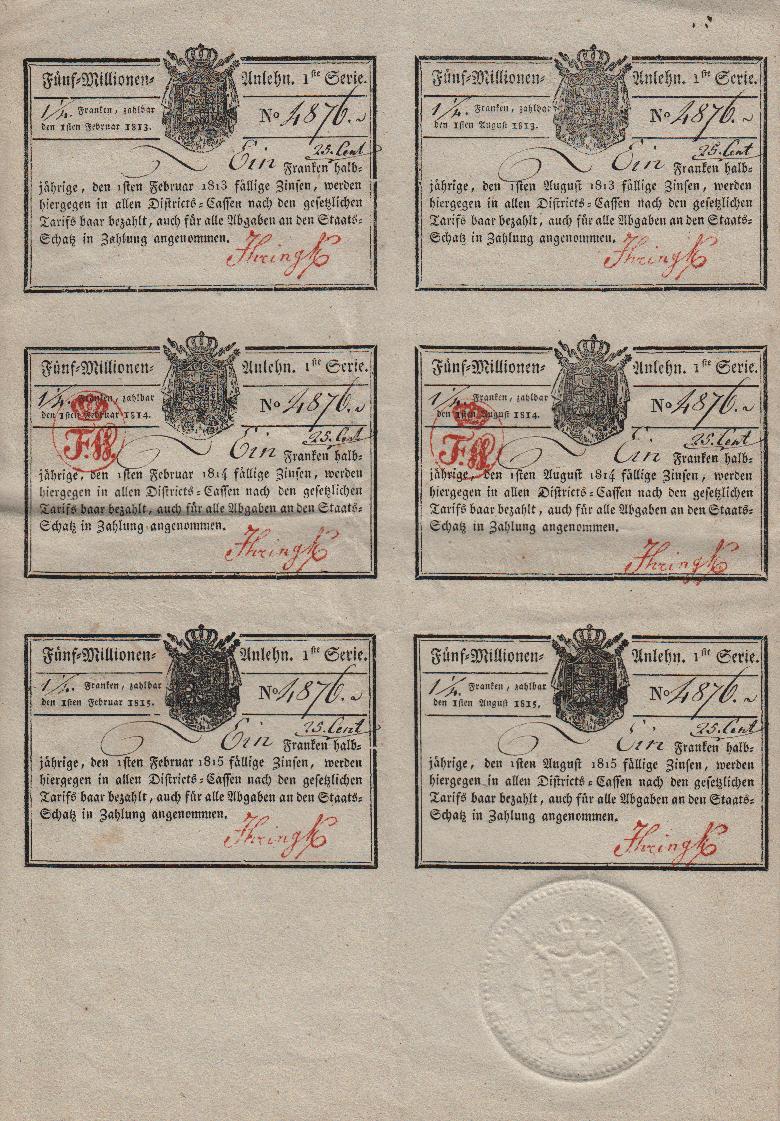 Fünf-Millionen- Anlehn. 1ste Serie.
1 1/4. Franken, zahlbar
den 1sten Februar 1813.
No 4876.
25. Cent
Ein Franken halb-
jährige, den 1sten Februar 1813 fällige Zinsen, werden
hiergegen in allen Districts-Cassen nach den gesetzlichen
Tarifs baar bezahlt, auch für alle Abgaben an den Staats-
Schatz in Zahlung angenommen.
Ihringk
Fünf-Millionen- Anlehn. 1ste Serie.
1 1/4. Franken, zahlbar
den 1sten August 1813.
No 4876.
25. Cent
Ein Franken halb-
jährige, den 1sten August 1813 fällige Zinsen, werden
hiergegen in allen Districts-Cassen nach den gesetzlichen
Tarifs baar bezahlt, auch für alle Abgaben an den Staats-
Schatz in Zahlung angenommen.
Ihringk
Fünf-Millionen- Anlehn. 1ste Serie.
1 1/4. Franken, zahlbar
den 1sten Februar 1814.
No 4876.
F.W.
25. Cent
Ein Franken halb-
jährige, den 1sten Februar 1814 fällige Zinsen, werden
hiergegen in allen Districts-Cassen nach den gesetzlichen
Tarifs baar bezahlt, auch für alle Abgaben an den Staats-
Schatz in Zahlung angenommen.
Ihringk
Fünf-Millionen- Anlehn. 1ste Serie.
1 1/4. Franken, zahlbar
den 1sten August 1814.
No 4876.
F.W.
25. Cent
Ein Franken halb-
jährige, den 1sten August 1814 fällige Zinsen, werden
hiergegen in allen Districts-Cassen nach den gesetzlichen
Tarifs baar bezahlt, auch für alle Abgaben an den Staats-
Schatz in Zahlung angenommen.
Ihringk
Fünf-Millionen- Anlehn. 1ste Serie.
1 1/4. Franken, zahlbar
den 1sten Februar 1815.
No 4876.
25. Cent
Ein Franken halb-
jährige, den 1sten Februar 1815 fällige Zinsen, werden
hiergegen in allen Districts-Cassen nach den gesetzlichen
Tarifs baar bezahlt, auch für alle Abgaben an den Staats-
Schatz in Zahlung angenommen.
Ihringk
Fünf-Millionen- Anlehn. 1ste Serie.
1 1/4. Franken, zahlbar
den 1sten August 1815.
No 4876.
25. Cent
Ein Franken halb-
jährige, den 1sten August 1815 fällige Zinsen, werden
hiergegen in allen Districts-Cassen nach den gesetzlichen
Tarifs baar bezahlt, auch für alle Abgaben an den Staats-
Schatz in Zahlung angenommen.
Ihringk